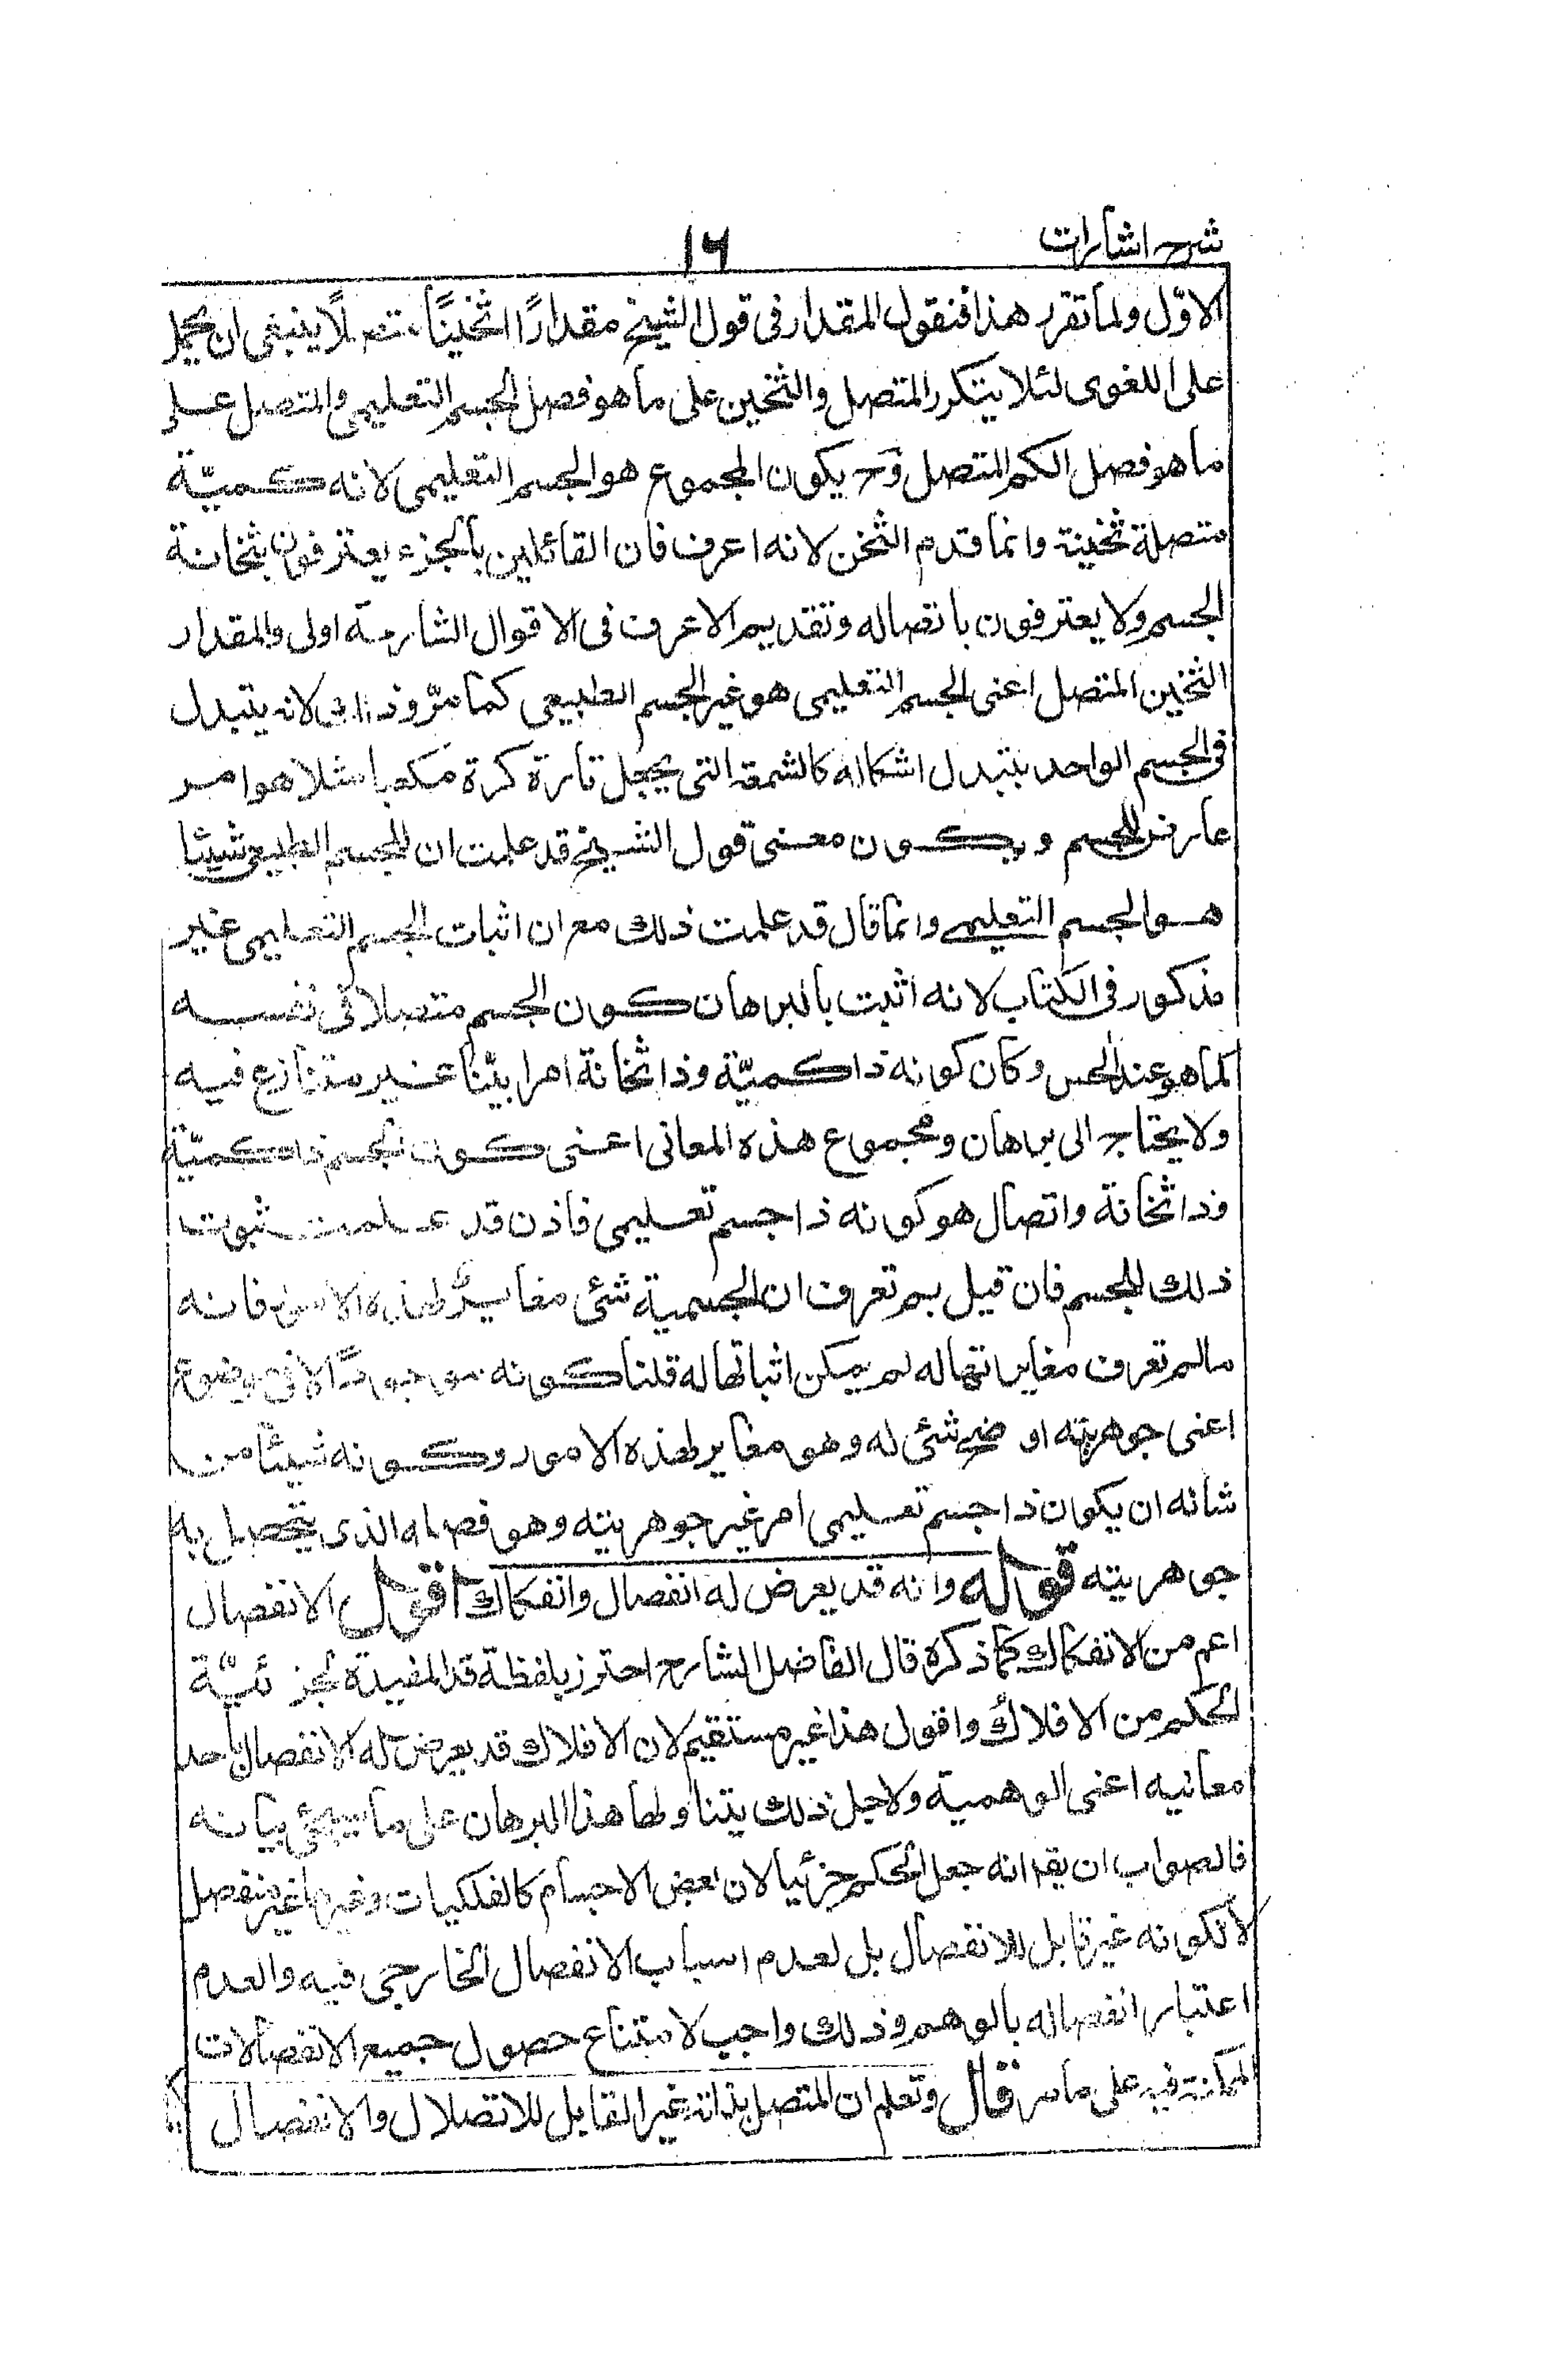 شرح اشارات
١٦
الاوّل ولما تقرر هذا فنقول المقدار فى قول الشيخ مقدارًا ثخينًا متصلًا ينبغى ان يحمل
على اللغوى لئلا يتكرر المتصل والثخين على ما هو فصل الجسم التعليمى والمتصل على
ما هو فصل الكم المتصل وح يكون المجموع هو الجسم التعليمى لانه كميّة
متصلة ثخينة وانما قدم الثخن لانه اعرف فان القائلين بالجزء يعترفون بثخانة
الجسم ولا يعترفون باتصاله وتقديم الاعرف فى الاقوال الشارحة اولى والمقدار
الثخين المتصل اعنى الجسم التعليمى هو غير الجسم الطبيعى كما مرّ وذلك لانه يتبدل
فى الجسم الواحد بتبدل اشكاله كالشمعة التى يجعل تارة كرة مكعبا مثلا هو امر
عارض للجسم ويكون معنى قول الشيخ قد علمت ان للجسم الطبيعى شيئا
هو الجسم التعليمى وانما قال قد علمت ذلك مع ان اثبات الجسم التعليمى غير
مذكور فى الكتاب لانه اثبت بالبرهان كون الجسم متصلا فى نفسه
كما هو عند الحس وكان كونه ذا كميّة وذا ثخانة امرا بيّنا غير متنازع فيه
ولا يحتاج الى برهان ومجموع هذه المعانى اعنى كون الجسم ذا كميّة
وذا ثخانة واتصال هو كونه ذا جسم تعليمى فاذن قد علمت ثبوت
ذلك للجسم فان قيل بم تعرف ان الجسمية شئى مغايرٌ لهذه الامور فانه
مالم تعرف مغايرتها له لم يمكن اثباتها له قلنا كونه موجودًا لا فى موضوع
اعنى جوهريته او شئى له وهو مغاير لهذه الامور وكونه شيئًا من
شانه ان يكون ذا جسم تعليمى امر غير جوهريته وهو فصله الذى يتحصل به
جوهريته قوله وانه قد يعرض له انفصال وانفكاك اقول الانفصال
اعم من الانفكاك كما ذكره قال الفاضل الشارح احترز بلفظة قد المفيدة لجزئيّة
الحكم من الافلاك واقول هذا غير مستقيم لان الافلاك قد يعرض له الانفصال باحد
معانيه اعنى الوهمية ولاجل ذلك يتناولها هذا البرهان على ما سيجئى بيانه
فالصواب ان يقد انه جعل الحكم جزئيا لان بعض الاجسام كالفلكيات وغيرها غير منفصل
لا لكونه غير قابل للانفصال بل لعدم اسباب الانفصال الخارجى فيه والعدم
اعتبار انفصاله بالوهم وذلك واجب لامتناع حصول جميع الانفصالات
الممكنة فيه على ما مر قال وتعلم ان المتصل بذاته غير القابل للاتصلال والانفصال